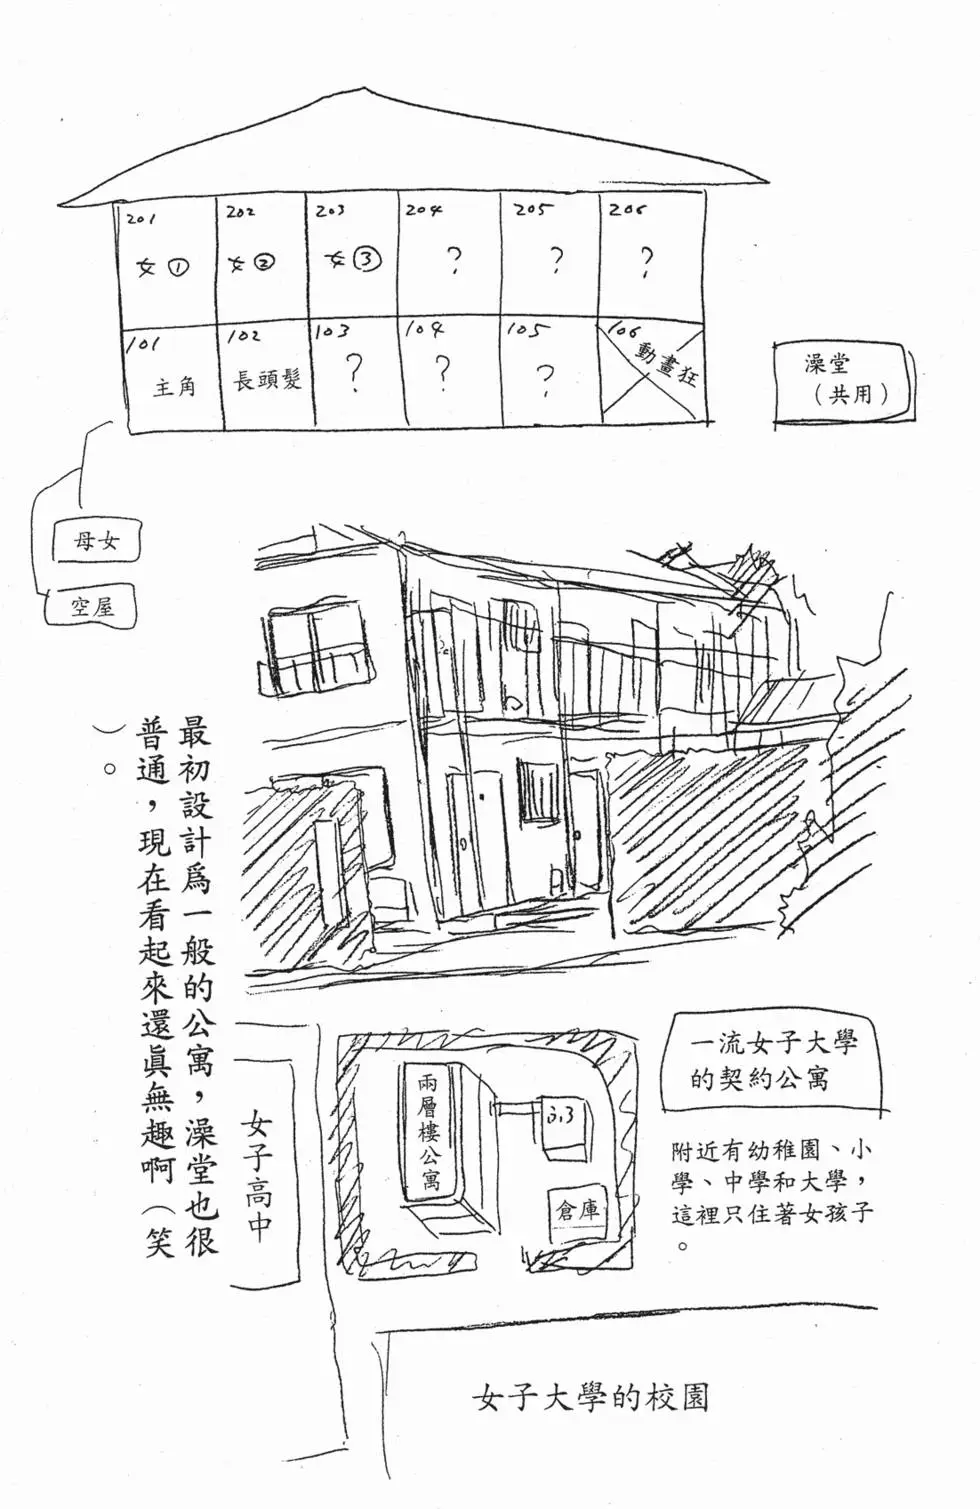 201
202
203
204
205
206
女①
女②
女③
?
?
?
101
102
103
104
105
106
主角
長頭髮
?
?
?
動畫狂
澡堂
（共用）
母女
空屋
最初設計爲一般的公寓，澡堂也很
普通，現在看起來還眞無趣啊（笑
）。
女子高中
兩層樓公寓
ふろ
倉庫
一流女子大學
的契約公寓
附近有幼稚園、小
學、中學和大學，
這裡只住著女孩子
。
女子大學的校園